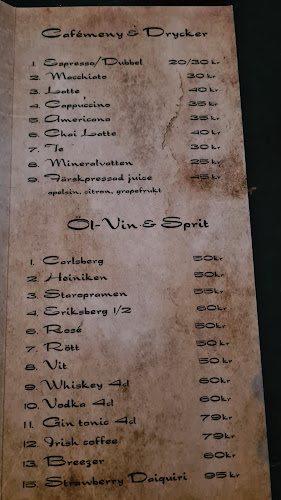 Cafémeny & Drycker
1. Espresso/Dubbel 20/30 kr
2. Macchiato 30 kr
3. Latte 40 kr
4. Cappuccino 35 kr
5. Americana 35 kr
6. Chai Latte 40 kr
7. Te 30 kr
8. Mineralvatten 25 kr
9. Färskpressad juice 45 kr
apelsin, citron, grapefrukt
Öl-Vin & Sprit
1. Carlsberg 50kr
2. Heiniken 50kr
3. Staropramen 55kr
4. Eriksberg 1/2 60kr
6. Rosé 50kr
7. Rött 50kr
8. Vit 50 kr
9. Whiskey 4cl 60kr
10. Vodka 4cl 60kr
11. Gin tonic 4cl 79kr
12. Irish coffee 79kr
13. Breezer 60kr
15. Strawberry Daiquiri 95 kr